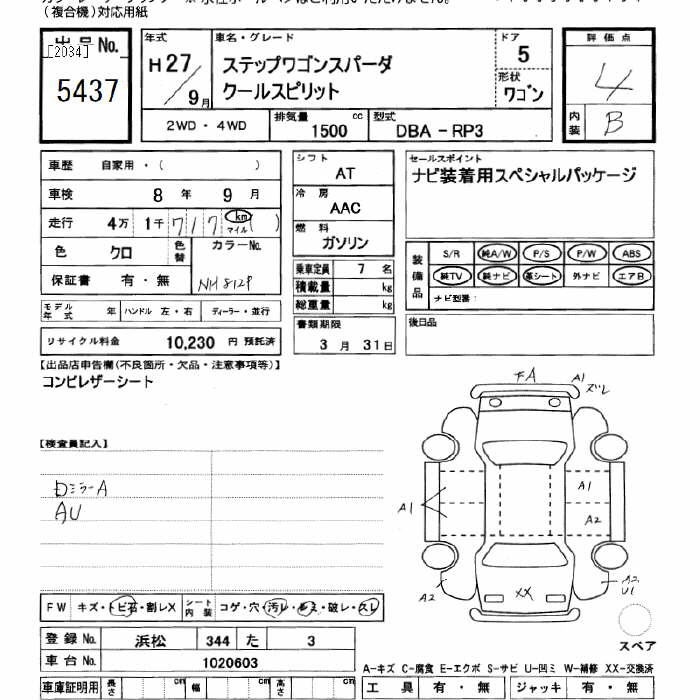 （複合機）対応用紙
出品No.
[2034]
5437
年式
H27/9月
車名・グレード
ステップワゴンスパーダ
クールスピリット
ドア
5
形状
ワゴン
2WD・4WD
排気量
1500 cc
型式
DBA - RP3
評価点
4
内装
B
車歴 自家用・（ ）
車検 8 年 9 月
走行 4万 1千 717 km マイル ( )
色 クロ 色替 カラーNo.
保証書 有・無 NH812P
モデル年式 年 ハンドル 左・右 ディーラー・並行
リサイクル料金 10,230 円 預託済
シフト
AT
冷房
AAC
燃料
ガソリン
乗車定員 7 名
積載量 kg
総重量 kg
書類期限
3 月 31 日
セールスポイント
ナビ装着用スペシャルパッケージ
装備品
S/R 純A/W P/S P/W ABS
純TV 純ナビ 革シート 外ナビ エアB
ナビ型番：
後日品
【出品店申告欄(不良箇所・欠品・注意事項等)】
コンビレザーシート
【検査員記入】
ロミラーA
AU
FA
A1
ズレ
A1
A1
A2
A2
XX
A2
U1
スペア
FW キズ・トビ石・割レX シート内装 コゲ・穴・汚レ・シミ・破レ・スレ
登録No. 浜松 344 た 3
車台No. 1020603
車庫証明用 長さ cm 幅 cm 高さ cm
A-キズ C-腐食 E-エクボ S-サビ U-凹ミ W-補修 XX-交換済
工具 有・無 ジャッキ 有・無